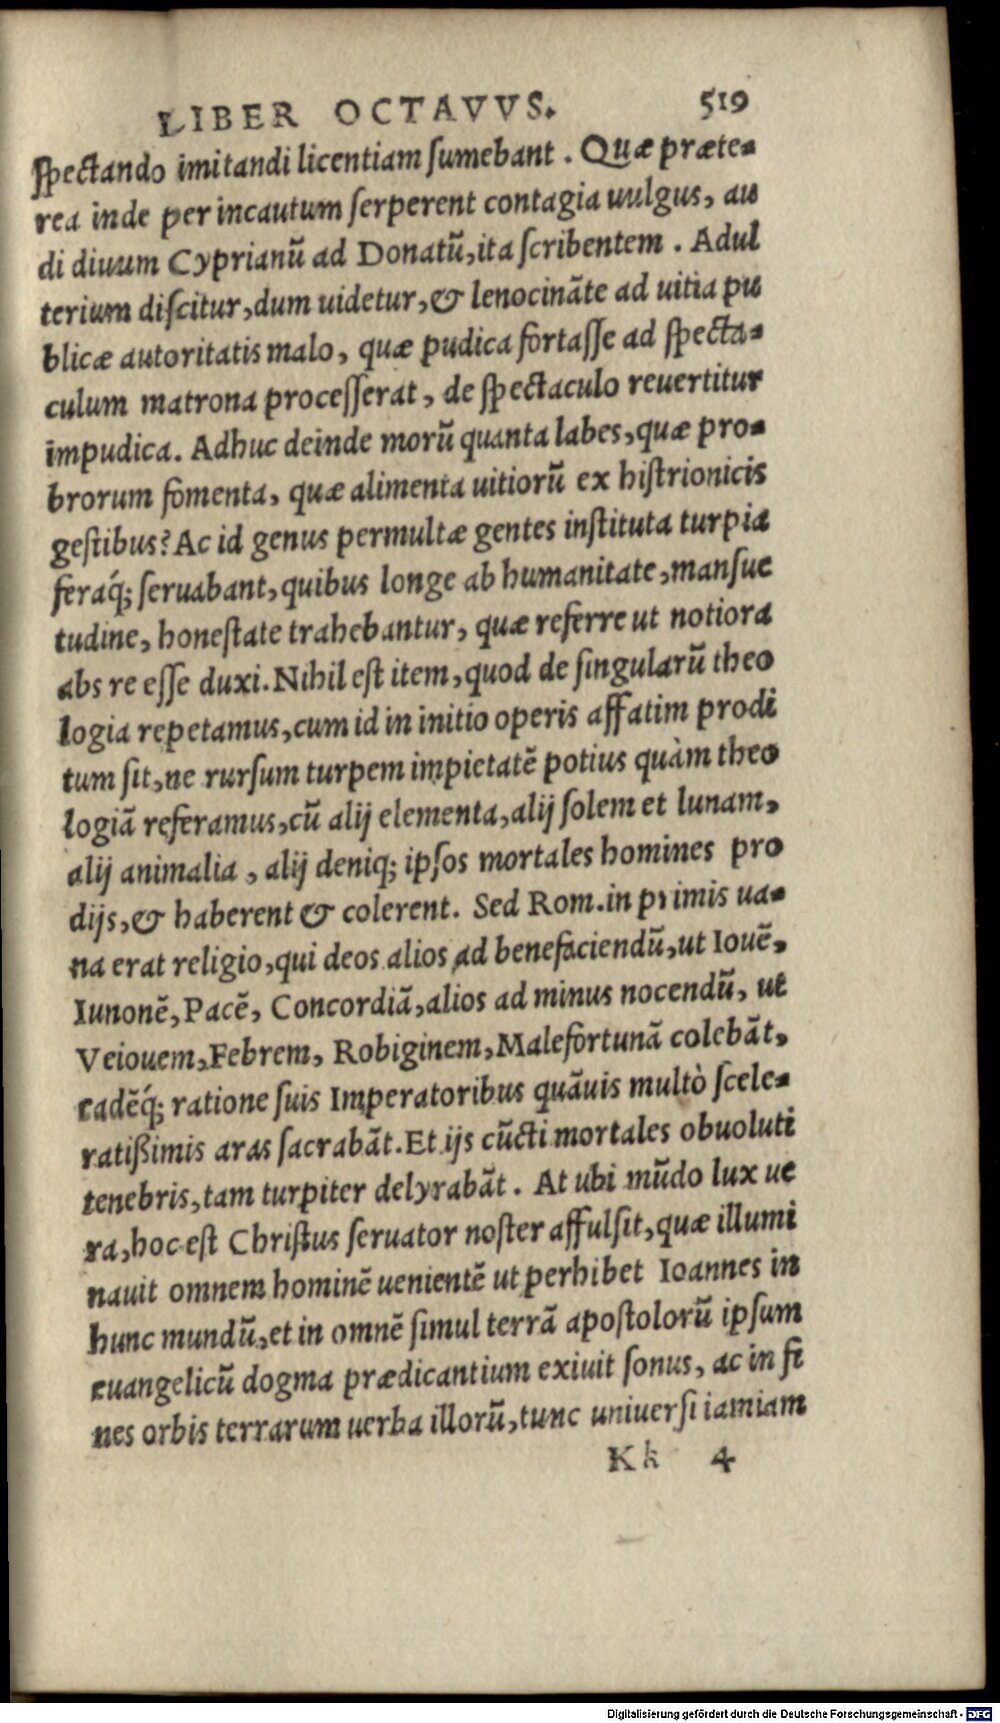 LIBER OCTAVVS. 519
spectando imitandi licentiam sumebant . Quæ præte-
rea inde per incautum serperent contagia uulgus, au
di diuum Cyprianũ ad Donatũ, ita scribentem . Adul
terium discitur, dum uidetur, & lenocinãte ad uitia pu
blicæ autoritatis malo, quæ pudica fortasse ad specta-
culum matrona processerat, de spectaculo reuertitur
impudica. Adhuc deinde morũ quanta labes, quæ pro-
brorum fomenta, quæ alimenta uitiorũ ex histrionicis
gestibus? Ac id genus permultæ gentes instituta turpia
feraq́; seruabant, quibus longe ab humanitate, mansue
tudine, honestate trahebantur, quæ referre ut notiora
abs re esse duxi. Nihil est item, quod de singularũ theo
logia repetamus, cum id in initio operis affatim prodi
tum sit, ne rursum turpem impietatẽ potius quàm theo
logiã referamus, cũ alij elementa, alij solem et lunam,
alij animalia , alij deniq; ipsos mortales homines pro
dijs, & haberent & colerent. Sed Rom. in primis ua-
na erat religio, qui deos alios ad benefaciendũ, ut Iouẽ,
Iunonẽ, Pacẽ, Concordiã, alios ad minus nocendũ, ut
Veiouem, Febrem, Robiginem, Malefortunã colebãt,
eadẽq́; ratione suis Imperatoribus quãuis multò scele-
ratißimis aras sacrabãt. Et ijs cũcti mortales obuoluti
tenebris, tam turpiter delyrabãt . At ubi mũdo lux ue
ra, hoc est Christus seruator noster affulsit, quæ illumi
nauit omnem hominẽ uenientẽ ut perhibet Ioannes in
hunc mundũ, et in omnẽ simul terrã apostolorũ ipsum
euangelicũ dogma prædicantium exiuit sonus, ac in fi
nes orbis terrarum uerba illorũ, tunc uniuersi iamiam
Kk 4
Digitalisierung gefördert durch die Deutsche Forschungsgemeinschaft - DFG